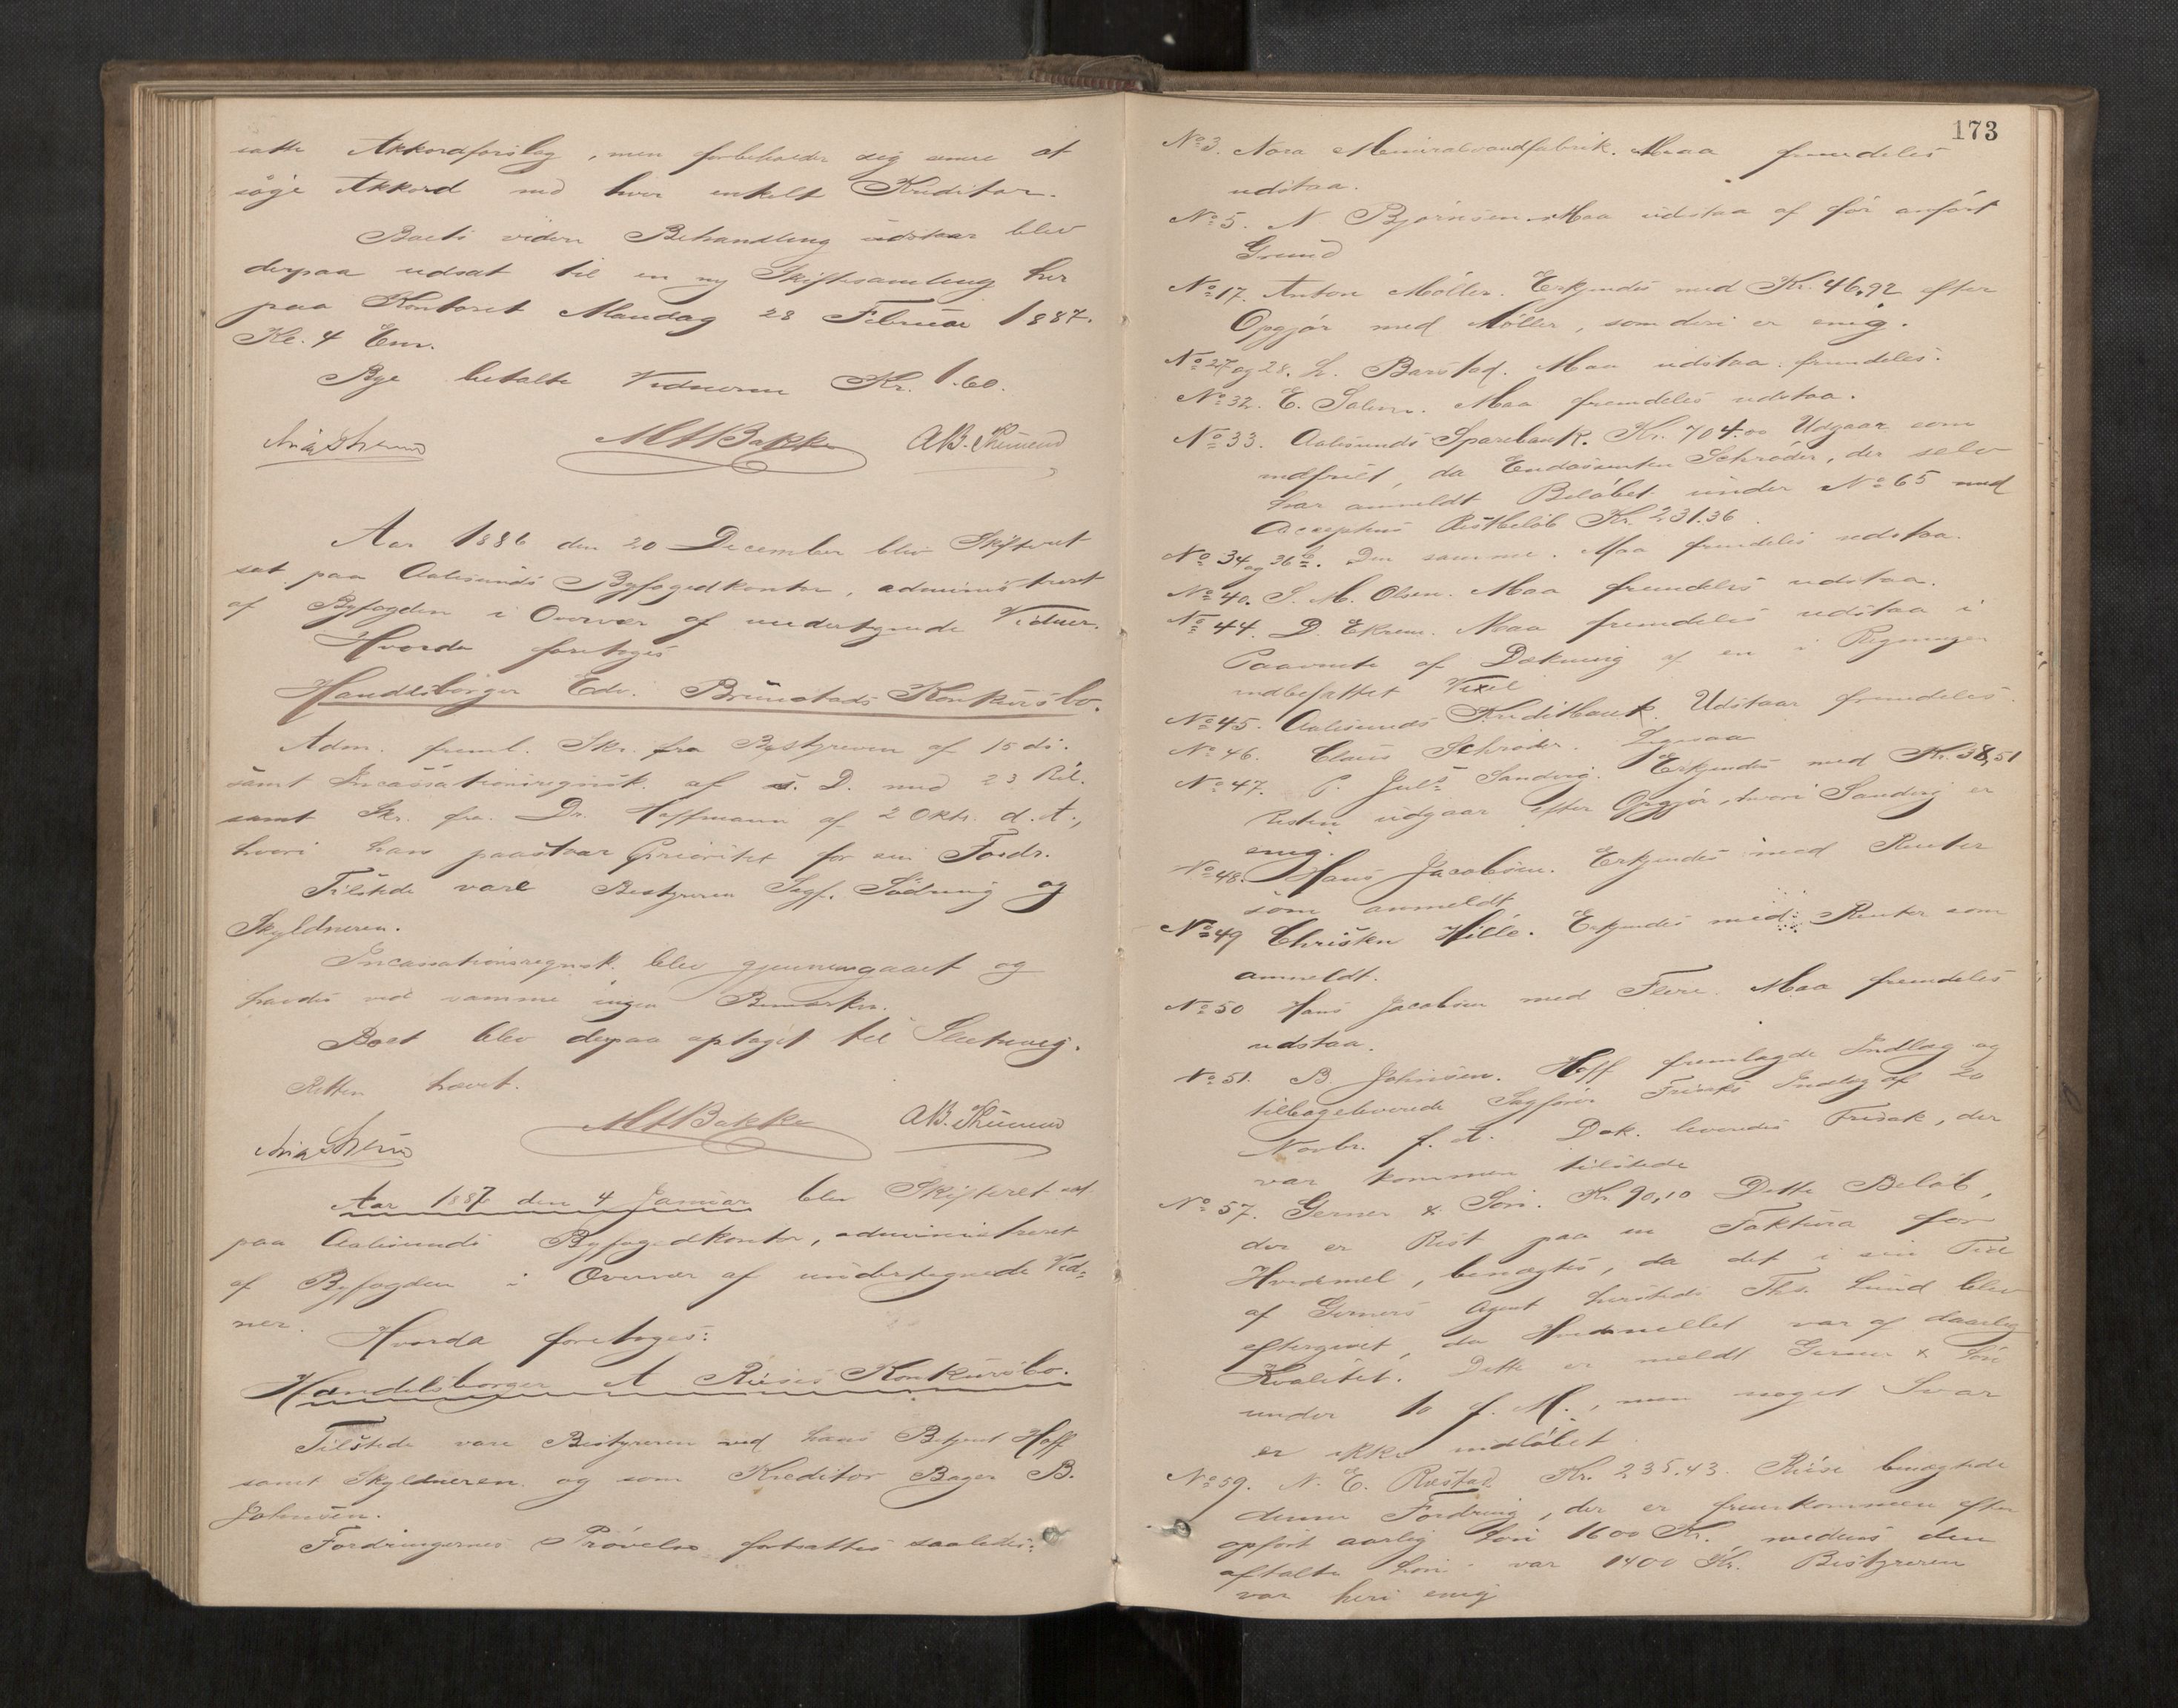 satte Akkordforslag, men forbeholder sig senere at
søge Akkord med hver enkelt Kreditor.
Boets videre Behandling udstaar blev
derpaa udsat til en ny Skiftesamling her
paa Kontoret Mandag 28 Februar 1887.
Kl. 4 Em.
Bye betalte Vidnerne Kr. 1.60.
MHBakke A.B.
Aar 1886 den 20 December blev Skifteret
sat paa Aalesunds Byfogedkontor, administreret
af Byfogden i Overvær af undertegnede Vidner.
Hvorda foretoges
Handelsborger Edv. Brunstads Konkursbo.
Adm. freml. Skr. fra Bestyreren af 15 ds.
samt Incassationsregnsk. af s. D. med 23 Bil.
samt Skr. fra Dr. Hoffmann af 2 Oktr. d. A.,
hvori han paastaar Prioritet for sin Fordr.
Tilstede vare Bestyreren Sagf. Sødring og
Skyldneren.
Incassationsregnsk. blev gjennemgaaet og
havdes ved samme ingen Bemærkn.
Boet blev derpaa optaget til Slutning.
Retten hævet.
MHBakke A.B.
Aar 1887 den 4 Januar blev Skifteret sat
paa Aalesunds Byfogedkontor, administreret
af Byfogden i Overvær af undertegnede Vid-
ner.
Hvorda foretoges:
Handelsborger A Riises Konkursbo.
Tilstede vare Bestyreren ved hans Betjent Hoff
samt Skyldneren og som Kreditor Bager B.
Johnsen.
Fordringernes Prøvelse fortsattes saaledes:
173
No 3. Nora Mineralvandfabrik. Maa fremdeles
udstaa.
No 5. N Bjørnsen. Maa udstaa af før anført
Grund
No 17. Anton Møller. Erkjendes med Kr. 46,92 efter
Opgjør med Møller, som deri er enig.
No 27 og 28. L. Barstad. Maa udstaa fremdeles.
No 32. E. Solem. Maa fremdeles udstaa.
No 33. Aalesunds Sparebank. Kr. 704.00 Udgaar som
indfriet, da Endossenten Schrøder, der selv
har anmeldt Beløbet under No 65 med
Acceptens Restbeløb Kr. 231.36.
No 34 og 36. Den samme. Maa fremdeles udstaa.
No 40. S. M. Olsen. Maa fremdeles udstaa.
No 44. D. Ekrem. Maa fremdeles udstaa i
Paavente af Dækning af en i Regningen
indbefattet Vexel
No 45. Aalesunds Kreditbank. Udstaar fremdeles.
No 46. Claus Schrøder. Ligesaa
No 47. P. Juls Sandvig. Erkjendes med Kr. 38,51
Resten udgaar efter Opgjør, hvori Sandvig er
enig.
No 48. Hans Jacobsen. Erkjendes med Renter
som anmeldt
No 49 Christen Hille. Erkjendes med Renter som
anmeldt.
No 50 Hans Jacobsen med Flere. Maa fremdeles
udstaa.
No 51. B Johnsen. Hoff fremlagde Indlæg og
tilbageleverede Sagfører Frisaks Indlæg af 20
Novbr. f. A. Dok. leveredes Frisak, der
var kommen tilstede
No 57. Gerner & Søn. Kr 90,10 Dette Beløb,
der er Rest paa en Faktura for
Hvedemel, benægtes, da det i sin Tid
af Gerners Agent hersteds Ths. Lund blev
eftergivet, da Hvedemellet var af daarlig
Kvalitet. Dette er meldt Gerner & Søn
under 10 f. M., men noget Svar
er ikke indløbet
No 59. N. E. Røstad Kr. 235.43. Riise benægtede
denne Fordring, der er fremkommen efter
opført aarlig Løn 1600 Kr., medens den
aftalte Løn var 1400 Kr. Bestyreren
var heri enig